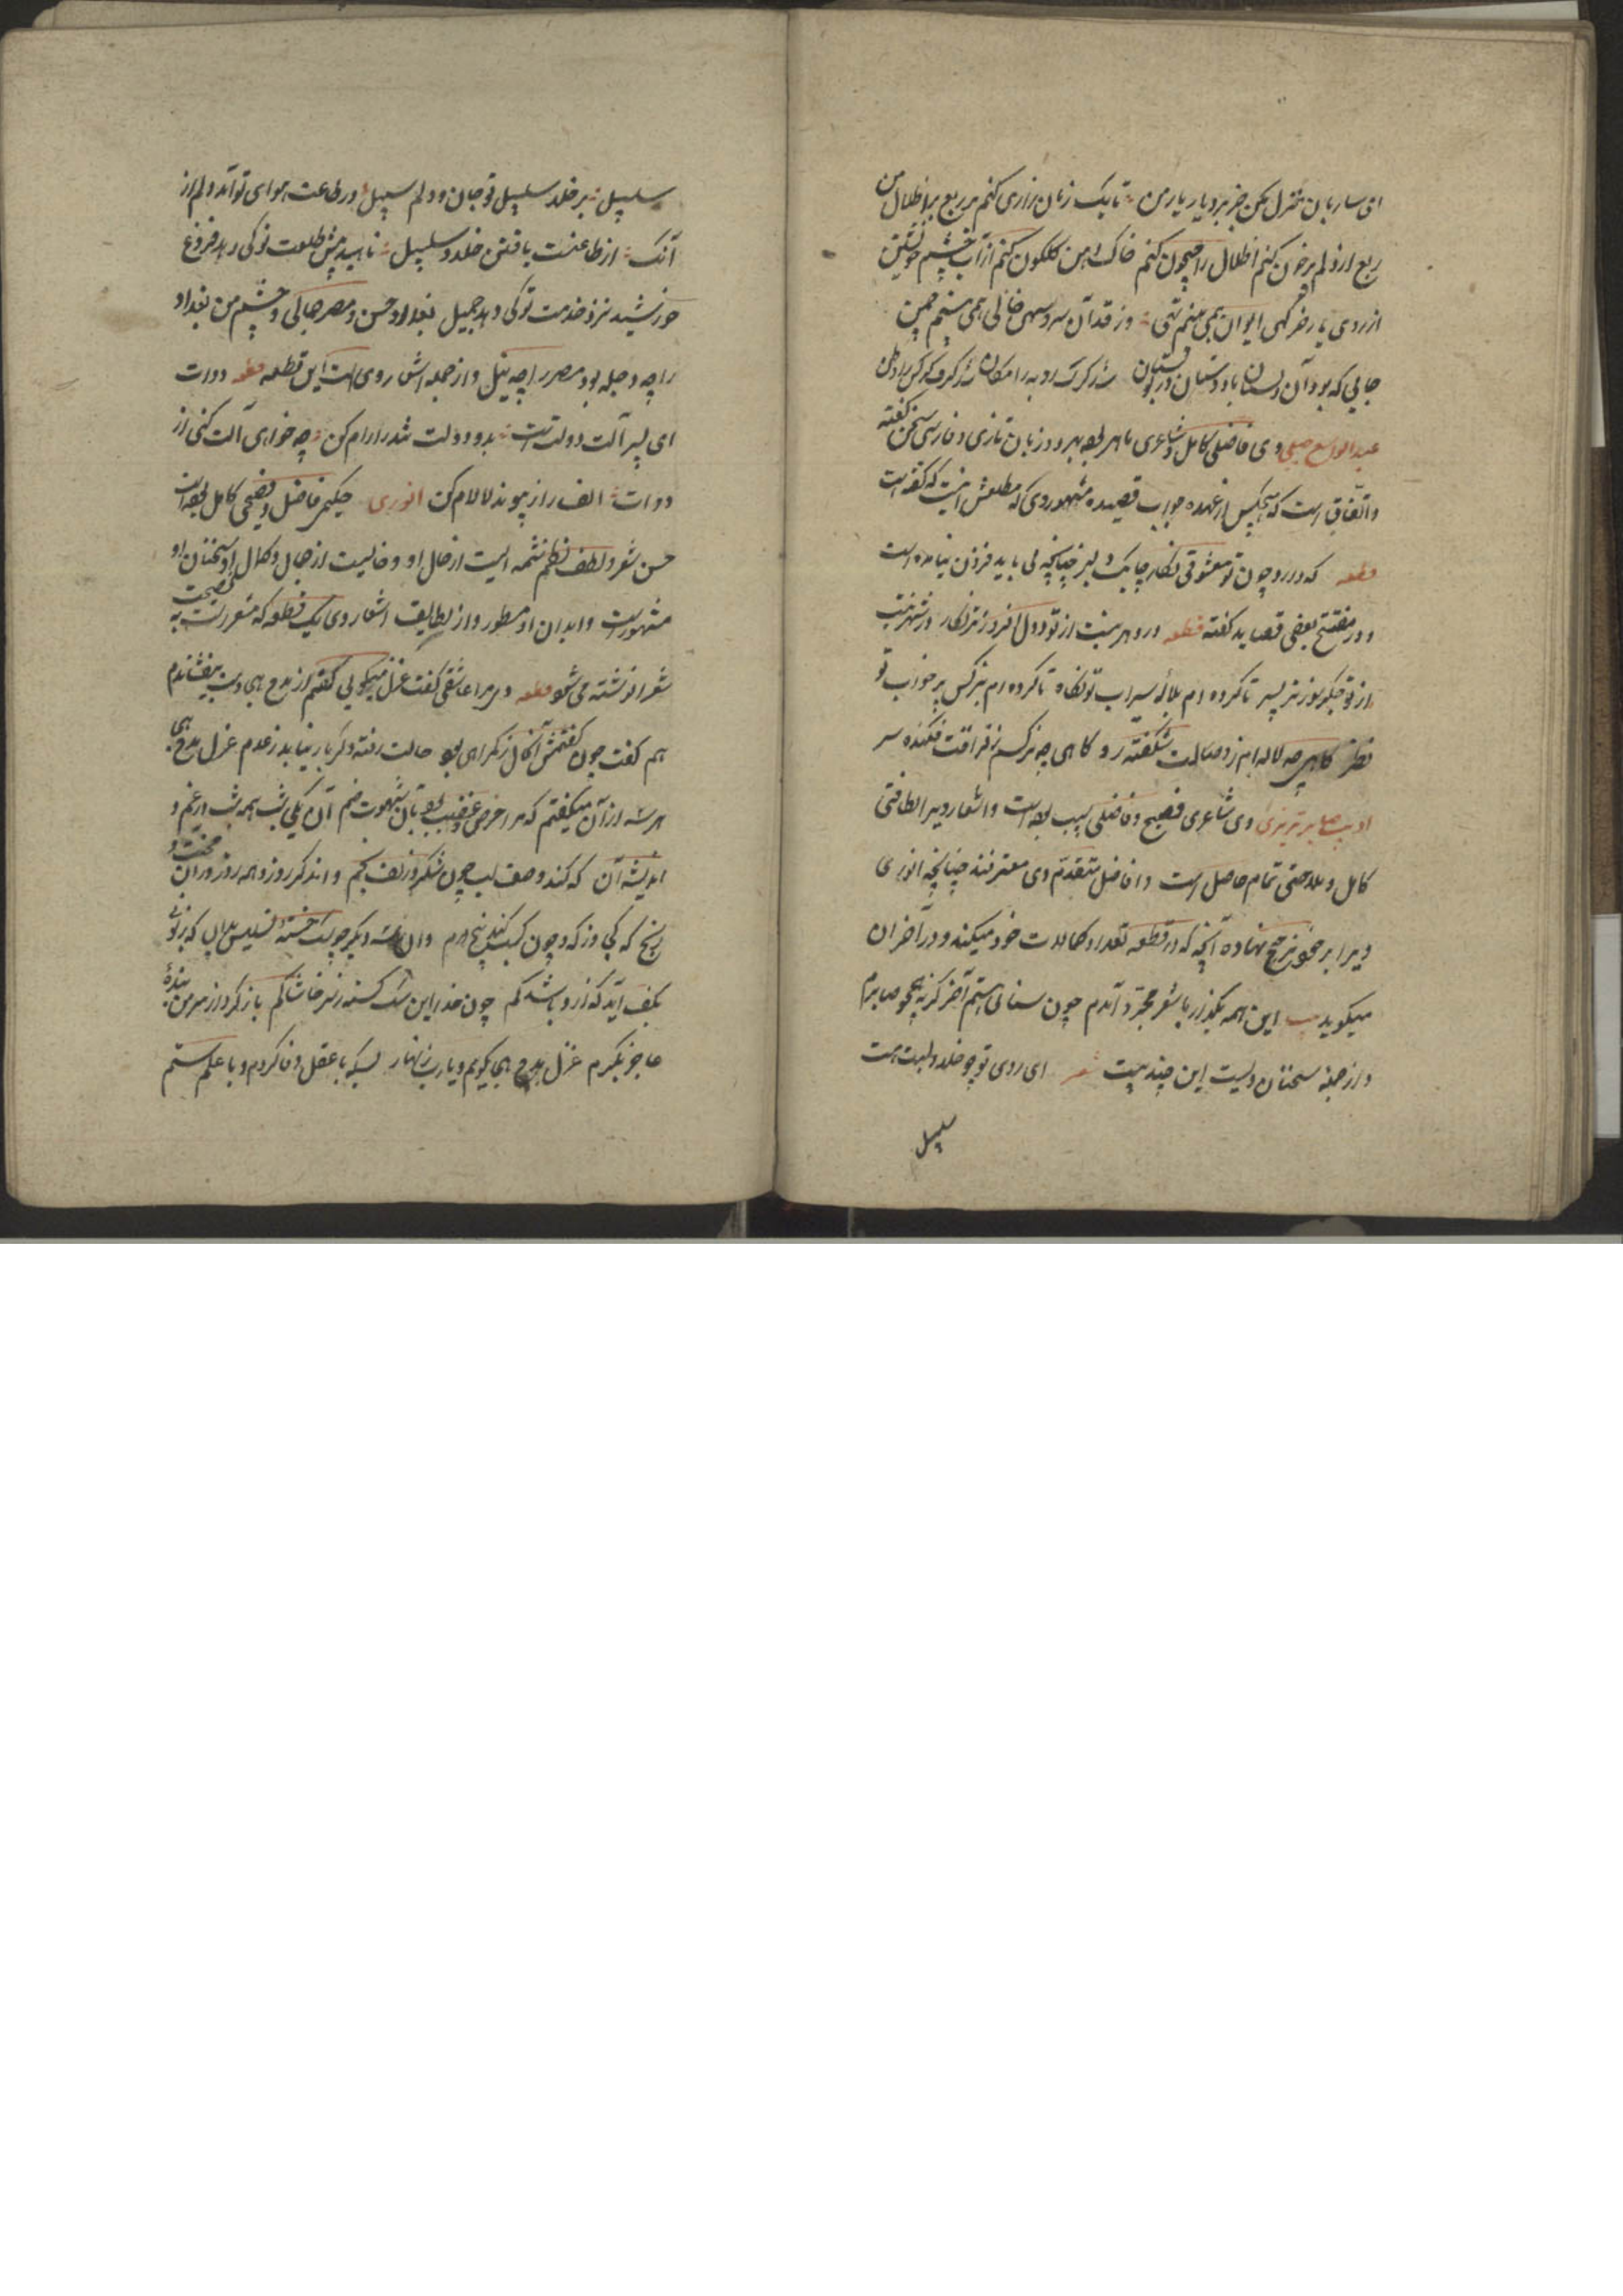 ای ساربان منزل مکن جز بر دیار یار من تا یک زمان زاری کنم بر ربع بر اطلال من
ربع از دلم پر خون کنم اطلال را جیحون کنم خاک دمن گلگون کنم از آب چشم خویشتن
از روی یار خرگهی ایوان همی بینم تهی وز قد آن سرو سهی خالی همی بینم چمن
جایی که بود آن دلستان با دوستان در بوستان شد گرگ و روبه را مکان شد گرگ و کرکس را وطن
عبدالواسع جبلی وی فاضلی کامل و شاعری ماهر بوده بهر دو زبان تازی و فارسی سخن گفته
و اتفاق است که هیچکس از عهده جواب قصیده مشهور وی که مطلعش اینست که گفته است
قطعه که دارد چون تو معشوقی نگار چابک و دلبر چنانچه می باید فزون نیامده است
و در مفتتح بعضی قصاید گفته قطعه
از تو جگرسوزتر پسر تا کرده ام بلاله سیراب تو نگاه تا کرده ام بنرگس پر خواب تو
نظر گاهی چه لاله ام ز وصالت شکفته رو گاهی چه نرگسم ز فراقت فکنده سر
ادیب صابر ترمزی وی شاعری فصیح و فاضلی لبیب بوده است و اشعار ویرا لطافتی
کامل و ملاحتی تمام حاصل است و افاضل متقدم وی معترفند چنانچه انوری
ویرا بر خود ترجیح نهاده آنچه که در قطعه تعداد کمالات خود میکند و در آخر آن
میگوید بیت این همه بگذار با شعر مجرد آمدم چون سنائی هستم آخر گر نه همچو صابرم
و از جمله سخنان ویست این چند بیت شعر ای روی تو چو خلد و لبت هست
سلسبیل
سلسبیل بر خلد سلسبیل تو جان و دلم سبیل در طاعت هوای تو آمد دلم از
آنک از طاعتست یافتن خلد و سلسبیل ناهید پیش طلعت تو کی دهد فروغ
خورشید نزد خدمت تو کی دهد جمیل بغداد حسن و مصر جمالی و چشم من بغداد
را چه دجله بود مصر را چه نیل و از جمله اشعار وی است این قطعه قطعه دوات
ای پسر آلت دولت است بدو دولت تند را رام کن چه خواهی که دولت کنی از
دوات الف را ز پیوند لا لام کن انوری حکیمی فاضل و فصیحی کامل بوده است
حسن شعر و لطف نظم شمه ایست از حال او و خالیست از جمال و کمال او سخنان او
مشهور است و دیوان او مسطور و از لطایف اشعار وی یک قطعه که مشعر است به نصیحت
شعرا نوشته می شود قطعه دی مرا عاشقی گفت غزل میگویی گفتم از مدح و هجا دست بیفشاندم
هم گفت چون گفتمش آن حال گمراهی بود حالت رفته دگر باز نیاید ز عدم غزل و مدح و هجا
هر سه از آن میگفتم که مرا حرص و غضب بود بآن شهوت ضم آن یکی شب همه شب در غم و
اندیشه آن که کند وصف لب چون شکر و زلف بخم و آن دگر روز و همه روز در آن محنت و
رنج که کجا وز که و چون کسب کند پنج درم وان سه دیگر چو سگ خسته تسلیش بدان که زبونی
بکف آید که ازو باشد کم چون خدا این سه سگ گرسنه را حاشاکم باز کرد از سر من بنده
عاجز بکرم غزل و مدح و هجا گویم و یارب زنهار بس که با عقل جفا کردم و با علم ستم